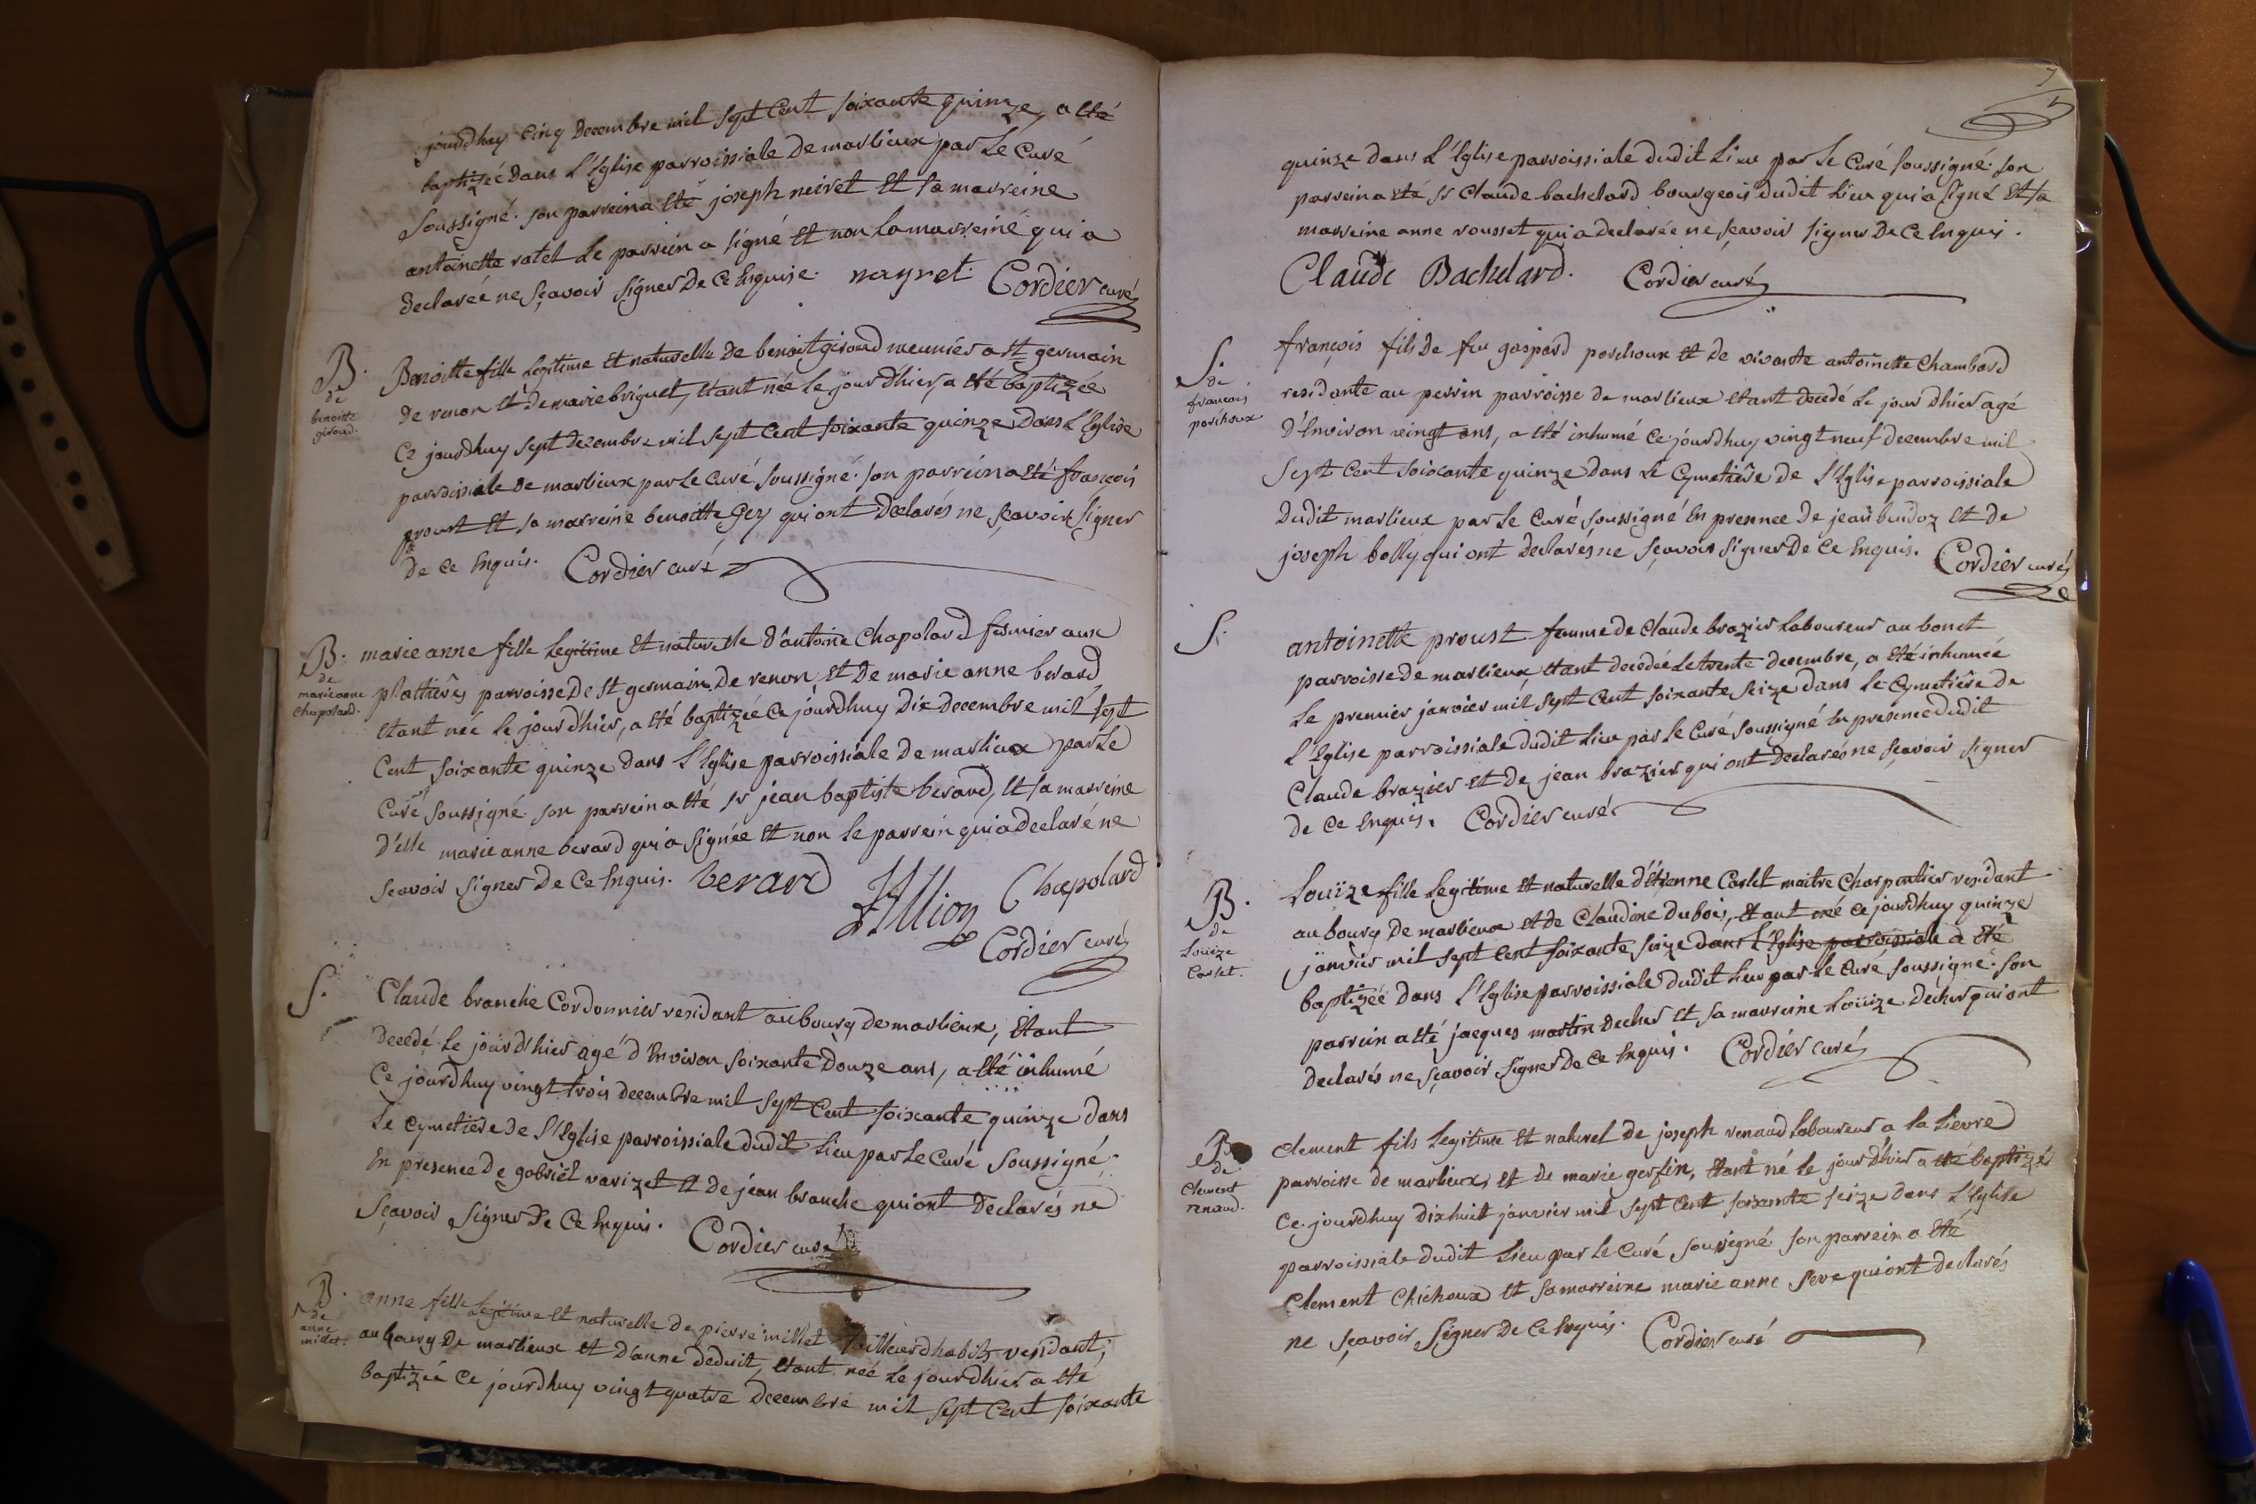 jourdhuy cinq Decembre mil sept Cent soixante quinze, a été
baptizée Dans L'Eglise parroissiale De marlieux par Le Curé
soussigné. son parrein a été joseph neiret Et sa marreine
antoinette ratet Le parrein a signé Et non La marreine qui a
Declarée ne sçavoir signer De Ce Enquise. nayret. Cordier curé
B.
de
benoitte
giroud.
Benoitte fille Legitime Et naturelle De benoit giroud meunier a st germain
De renon Et De marie briguet, étant née Le jour Dhier, a été baptizée
Ce jourdhuy sept Decembre mil sept Cent soixante quinze Dans L'Eglise
parroissiale De marlieux par Le Curé soussigné. son parrein a été françois
proust Et sa marreine benoitte Gey qui ont Declarés ne sçavoir signer
De Ce Enquis. Cordier curé
B.
de
marieanne
chapolard.
marie anne fille Legitime Et naturelle D'antoine Chapolard fermier aux
plattieres parroisse De st germain De renon, Et De marie anne berard
étant née Le jour Dhier, a été baptizée Ce jourdhuy Dix Decembre mil sept
Cent soixante quinze Dans L'Eglise parroissiale De marlieux par Le
Curé soussigné. son parrein a été sr jean baptiste berard, Et sa marreine
D'elle marie anne berard qui a signée Et non Le parrein qui a Declaré ne
sçavoir signer De Ce Enquis. berard Chapolard
Cordier curé
S.
Claude branche Cordonnier residant au bourg De marlieux, étant
Decedé Le jour D'hier agé D'Environ soixante Douze ans, a été inhumé
Ce jourdhuy vingt trois Decembre mil sept Cent soixante quinze Dans
Le Cymetiere De L'Eglise parroissiale Dudit Lieu par Le Curé soussigné,
En presence De gabriel varizet Et De jean branche qui ont Declarés ne
sçavoir signer De Ce Enquis. Cordier curé
B.
de
anne
millet.
anne fille Legitime Et naturelle De pierre millet Tailleur d'habits residant,
au bourg De marlieux Et D'anne Deduit, étant née Le jour Dhier a été
baptizée Ce jourdhuy vingt quatre Decembre mil sept Cent soixante
7
quinze Dans L'Eglise parroissiale Dudit Lieu par Le Curé soussigné. son
parrein a été sr Claude bachelard bourgeois Dudit Lieu qui a signé Et sa
marreine anne rousset qui a Declarée ne sçavoir signer De Ce Enquis.
Claude Bachelard. Cordier curé
S.
de
francois
porchoux
françois fils De feu gaspard porchoux Et De vivante antoinette Chambard
residante au perrin parroisse De marlieux étant Decedé Le jour Dhier agé
D'Environ vingt ans, a été inhumé Ce jourdhuy vingt neuf Decembre mil
sept Cent soixante quinze Dans Le Cymetiere De L'Eglise parroissiale
Dudit marlieux par Le Curé soussigné En presence De jean buidoz Et De
joseph bolly qui ont Declarés ne sçavoir signer De Ce Enquis. Cordier curé
S.
antoinette proust femme De Claude brazier Laboureur au bonet
parroisse De marlieux, étant Decedée Le trente Decembre, a été inhumée
Le premier janvier mil sept Cent soixante seize Dans Le Cymetiere De
L'Eglise parroissiale Dudit Lieu par Le Curé soussigné En presence Dudit
Claude brazier Et De jean brazier qui ont Declarés ne sçavoir signer
De Ce Enquis. Cordier curé
B.
de
Louize
Carlet.
Louïze fille Legitime Et naturelle D'étienne Carlet maitre Charpentier residant
au bourg De marlieux Et De Claudine Dubois, étant née Ce jourdhuy quinze
janvier mil sept Cent soixante seize dans L'Eglise parroissiale a été
baptizée Dans L'Eglise parroissiale Dudit Lieu par Le Curé soussigné. son
parrein a été jacques martin Decher Et sa marreine Louïze Decher qui ont
Declarés ne sçavoir signer De Ce Enquis. Cordier curé
B
de
Clement
renaud.
Clement fils Legitime Et naturel De joseph renaud Laboureur a La Lievre
parroisse De marlieux, Et De marie gerfin, étant né Le jour Dhier a été baptizé
Ce jourdhuy Dixhuit janvier mil sept Cent soixante seize Dans L'Eglise
parroissiale Dudit Lieu par Le Curé soussigné son parrein a été
Clement Chichoux Et sa marreine marie anne seve qui ont Declarés
ne sçavoir signer De Ce Enquis. Cordier curé